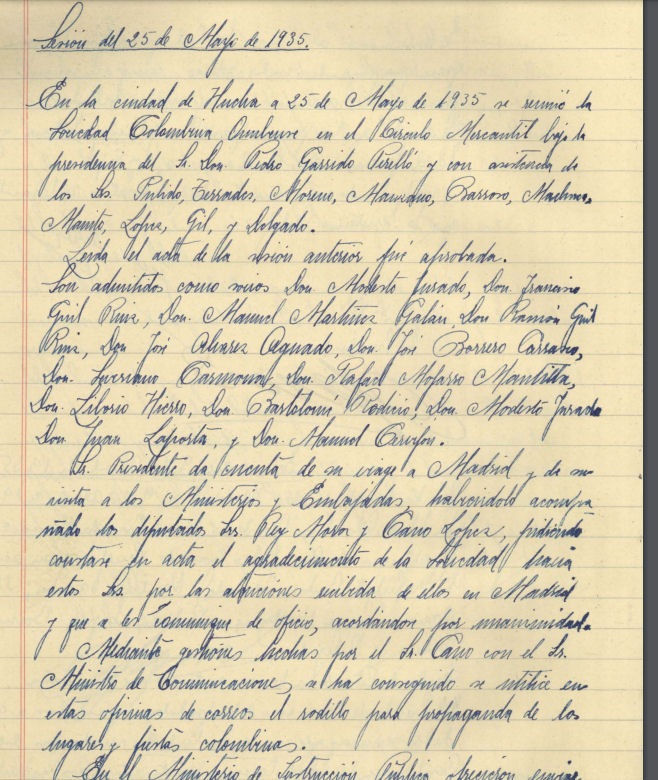 Sesión del 25 de Mayo de 1935.
En la ciudad de Huelva a 25 de Mayo de 1935 se reunió la
Sociedad Colombina Onubense en el Círculo Mercantil bajo la
presidencia del Sr. Don. Pedro Garrido Perelló y con asistencia de
los Srs. Pulido, Terrades, Moreno, Manzano, Barroso,
Lopez, Gil, y Delgado.
Leida el acta de la sesión anterior fué aprobada.
Son admitidos como socios Don. Modesto Jurado, Don. Francisco
Guil Ruiz, Don. Manuel Martínez Galán, Don Ramón Guil
Ruiz, Don José Alvarez Aguado, Don. José Borrero Carrasco,
Don. Severiano Carmona, Don. Rafael Mojarro Mantilla,
Don. Liborio Hierro, Don. Bartolomé Rodicio, Don. Modesto Jurado
Don. Juan Laporta, y Don. Manuel
Sr. Presidente da cuenta de su viage a Madrid y de su
visita a los Ministerios y Embajadas, habiendolo acompa
ñado los diputados Srs. Rey Mora y Cano Lopez, pidiendo
constase en acta el agradecimiento de la Sociedad hacia
estos Srs. por las atenciones recibida de ellos en Madrid
y que a les comunique de oficio, acordándose por unanimidad.
Mediante gestiones hechas por el Sr. Cano con el Sr.
Ministro de Comunicaciones, se ha conseguido se utilice en
estas oficinas de correos el rodillo para propaganda de los
lugares y fiestas colombinas.
En el Ministerio de Instrucción Pública ofrecieron enviar